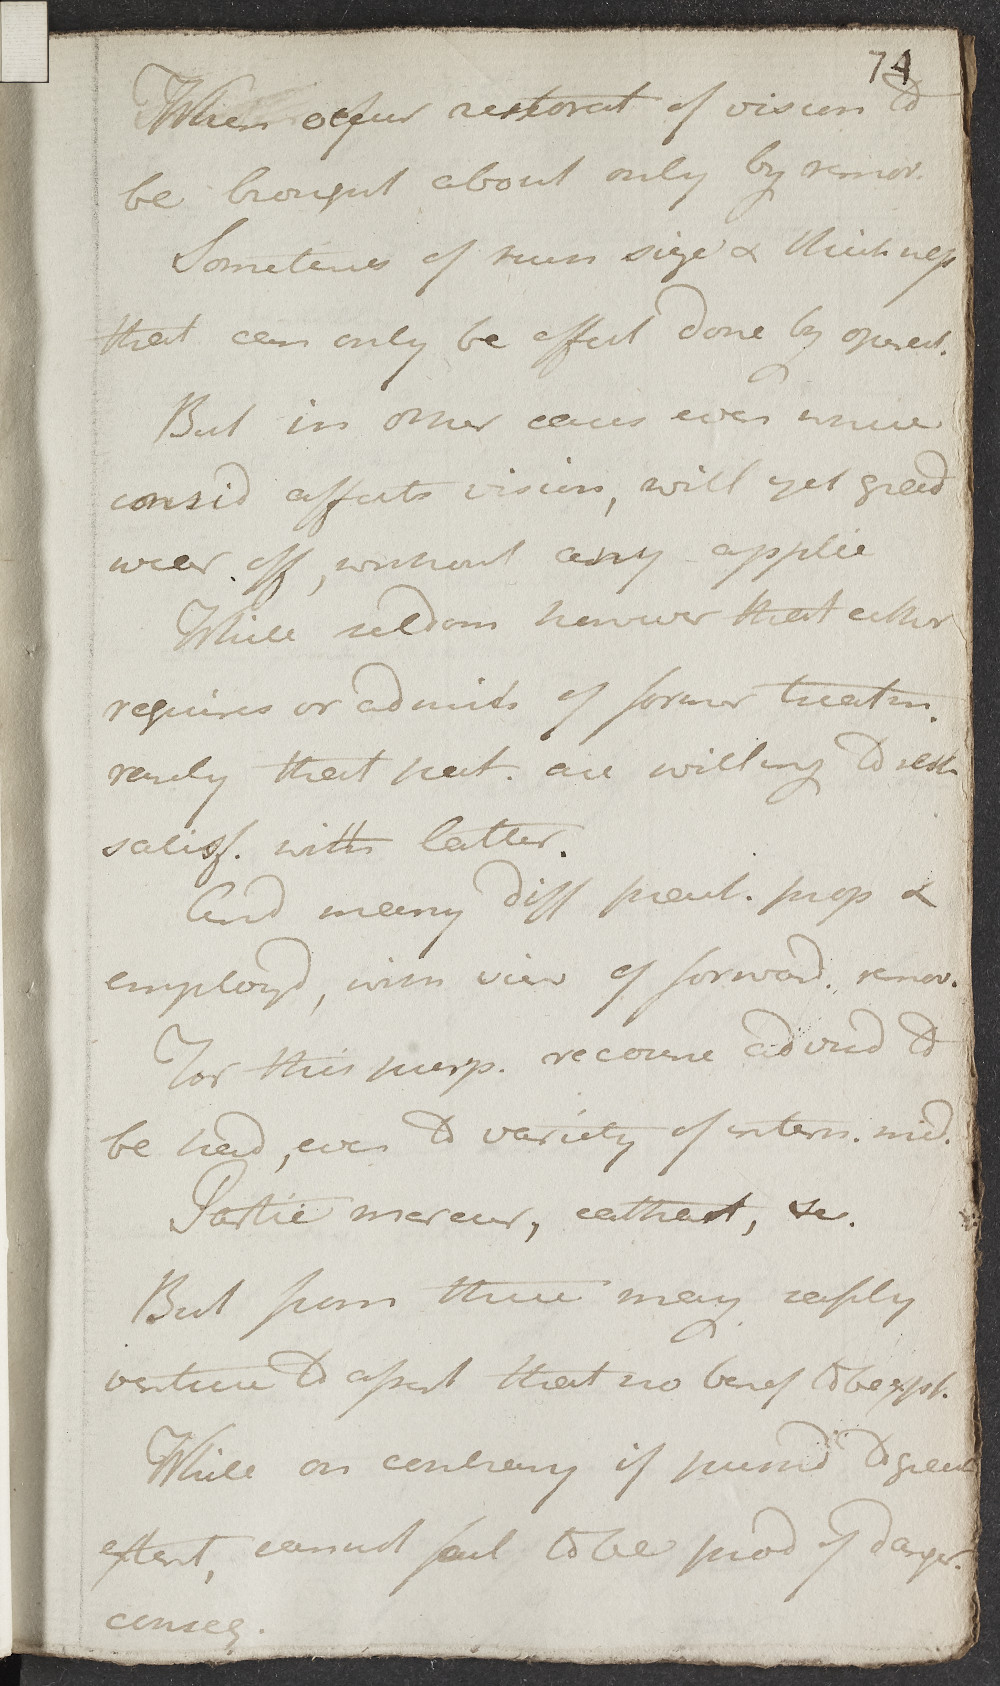 74
When occur restorat of vision to
be brought about only by remov.
Sometimes of such size & thickness
that can only be effect done by operat.
But in other cases even where
consid affects vision, will yet grad
wear off, without any applic
While seldom however that either
requires or admits of former treatm.
rarely that pat. are willing to rest
satisf. with latter.
And many diff pract. prop &
employd, with view of forward. remov.
For this purp. recourse advised to
be had, even to variety of intern. med.
Partic mercur, cathart, &c.
But from these may safely
venture to assert that no benef to be expt.
While on contrary if pursd to great
extent, cannot fail to be prod of danger.
conseq.